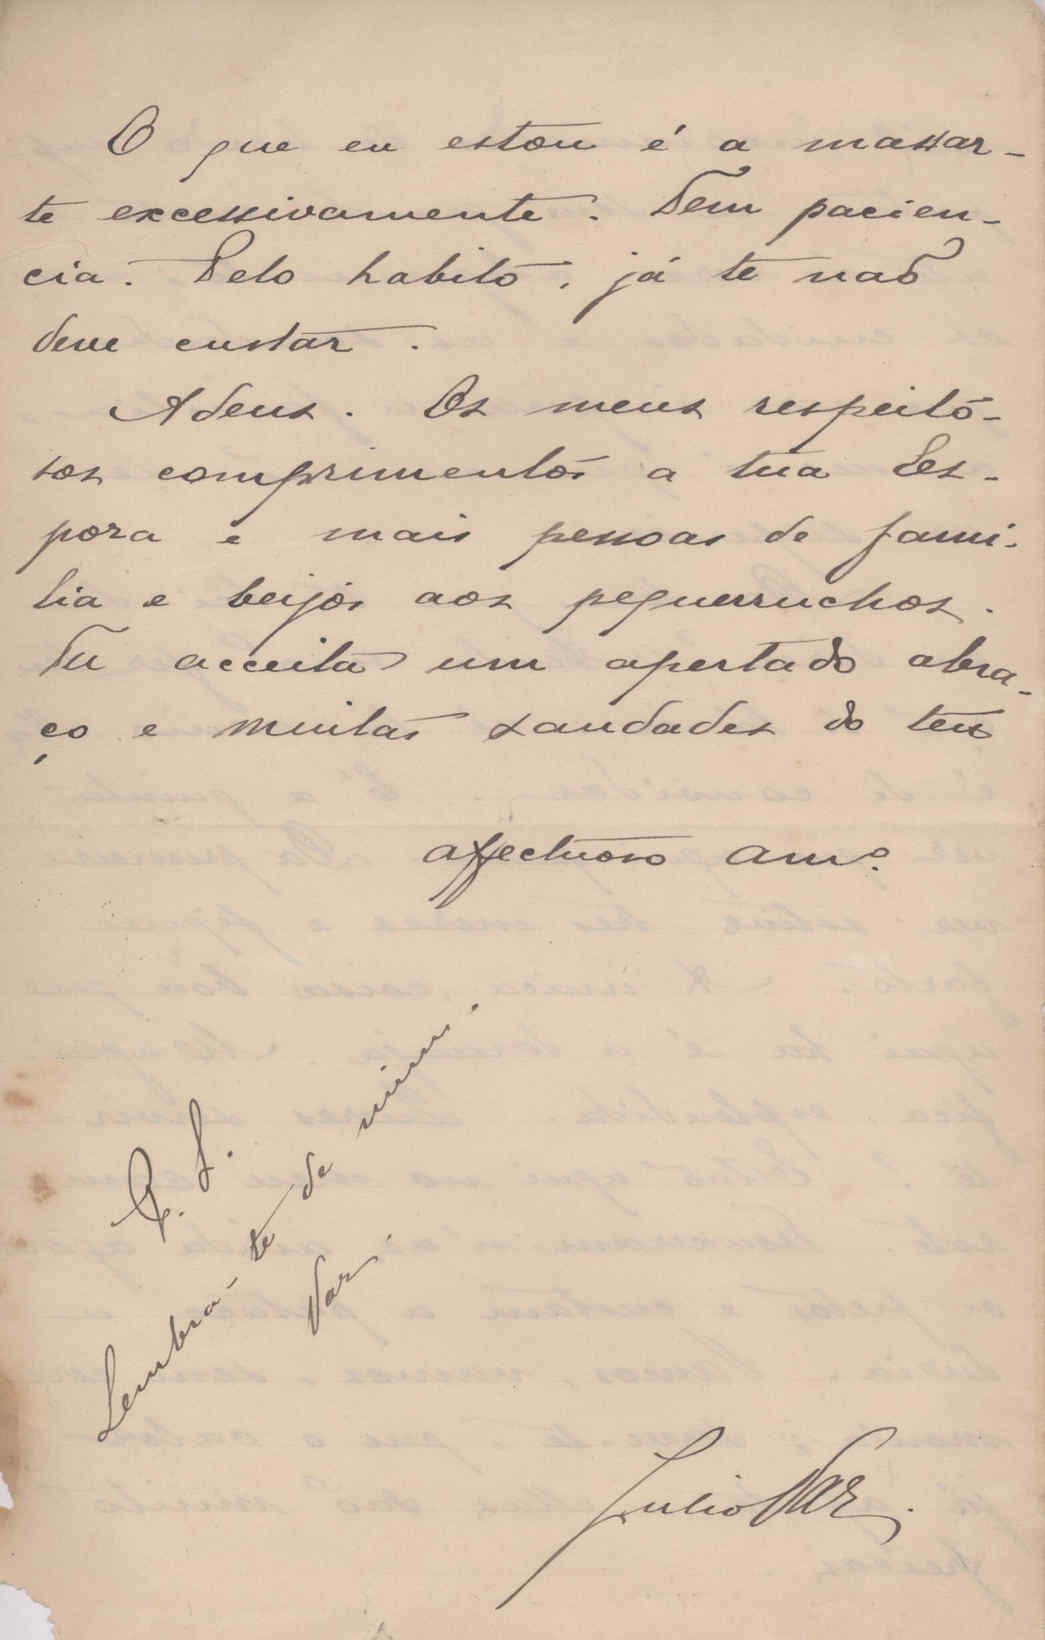 O que eu estou é a massar-
te excessivamente. Tem pacien-
cia. Pelo habito, já te não
deve custar.
Adeus. Os meus respeito-
sos comprimentos a tua Es-
posa e mais pessoas de fami-
lia e beijos aos pequerruchos.
Tu acceita um apertado abra-
ço e muitas saudades do teu
affectuoso amº.
P. S.
Lembra-te de mim.
Vaz.
Julio Vaz.